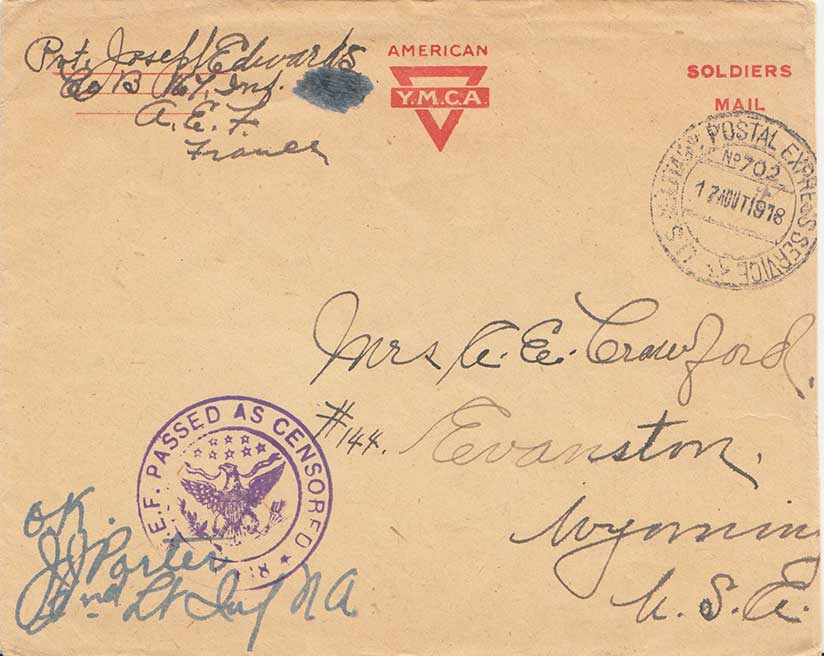 Pvt. Joseph Edwards
Co B 164, Inf.
A. E. F.
France
AMERICAN
Y.M.C.A.
SOLDIERS
MAIL
U.S. POSTAL EXPRESS SERVICE
No 702
17 AOUT 1918
Mrs A. E. Crawford.
#144. Evanston,
Wyoming
U. S. A.
E.F. PASSED AS CENSORED
O.K.
J J Porter
2nd Lt Inf N A